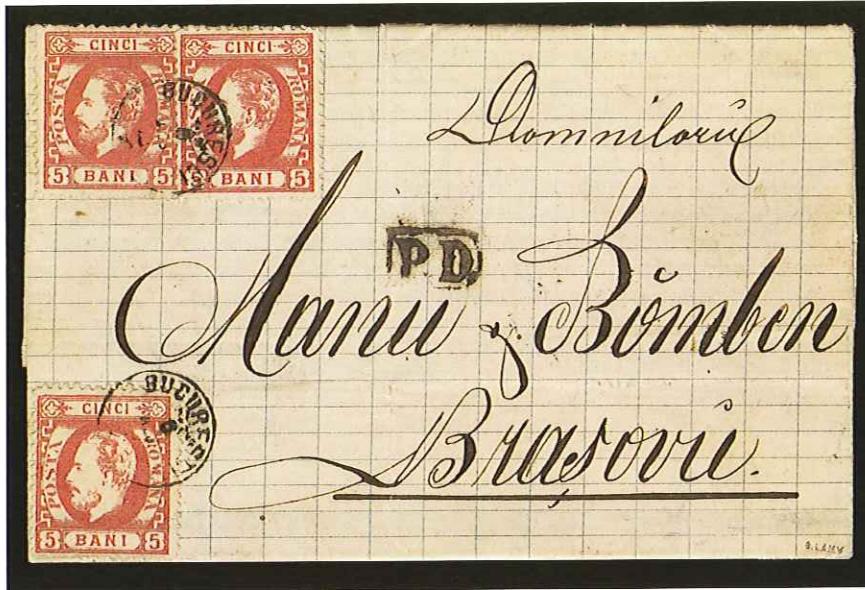 CINCI
POSTA
ROMANA
5 BANI 5
CINCI
ROMANA
5 BANI 5
BUCURESCI
Domniloru
P.D.
Manu & Bömben
Brașovŭ.
CINCI
POSTA
ROMANA
5 BANI 5
BUCURESCI